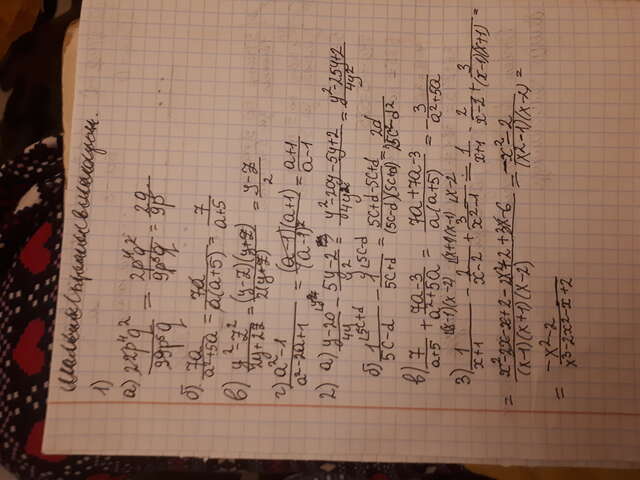 1)
а) 22p⁴q² / 99p⁵q = 2p⁴q² / 9p⁵q = 2q / 9p
б) 7a / a²+5a = 7a / a(a+5) = 7 / a+5
в) y²-z² / 2y+2z = (y-z)(y+z) / 2(y+z) = y-z / 2
г) a²-1 / a²-2a+1 = (a-1)(a+1) / (a-1)² = a+1 / a-1
2) а) y-20 / 4y - 5y-2 / y² = y²-20y-5y+2 / 4y² = y²-25y+2 / 4y²
б) 1 / 5c-d - 1 / 5c+d = 5c+d-5c+d / (5c-d)(5c+d) = 2d / 25c²-d²
в) 7 / a+5 + 7a-3 / a²+5a = 7a+7a-3 / a(a+5) = - 3 / a²+5a
3) 1 / x+1 - 2 / x-2 + 3 / x²-1 = 1 / x+1 - 2 / x-2 + 3 / (x-1)(x+1) =
= x²-2x-x+2-2x²+2+3x-6 / (x-1)(x+1)(x-2) = -x²-2 / (x²-1)(x-2) =
= -x²-2 / x³-2x²-x+2